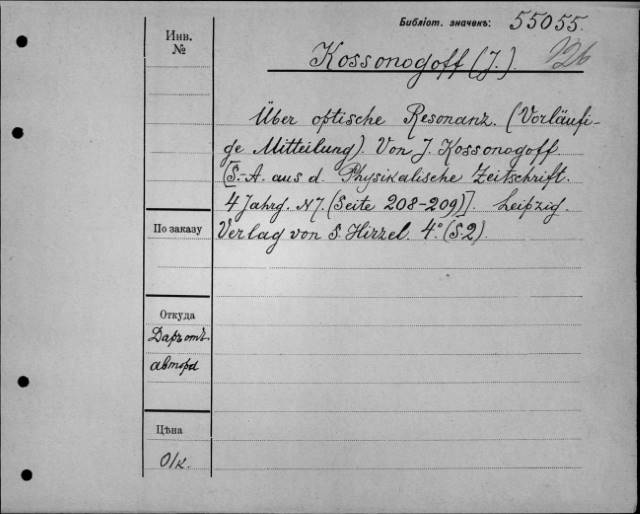 Библіот. значекъ: 55055.
126
Инв.
№
Kossonogoff (J.).
Über optische Resonanz. (Vorläufi-
ge Mitteilung). Von J. Kossonogoff.
[S.-A. aus d. Physikalische Zeitschrift.
4 Jahrg. N7. (Seite 208-209)]. Leipzig.
По заказу
Verlag von S. Hirzel. 4° (S.2).
Откуда
Даръ отъ
автора
Цѣна
О/к.